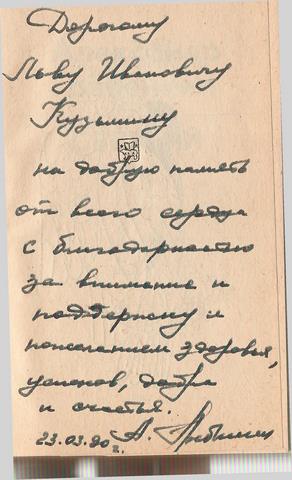 Дорогому
Льву Ивановичу
Кузьмину
на добрую память
от всего сердца
с благодарностью
за внимание и
поддержку и
пожеланием здоровья,
успехов, добра
и счастья.
23.03.90 г. А.